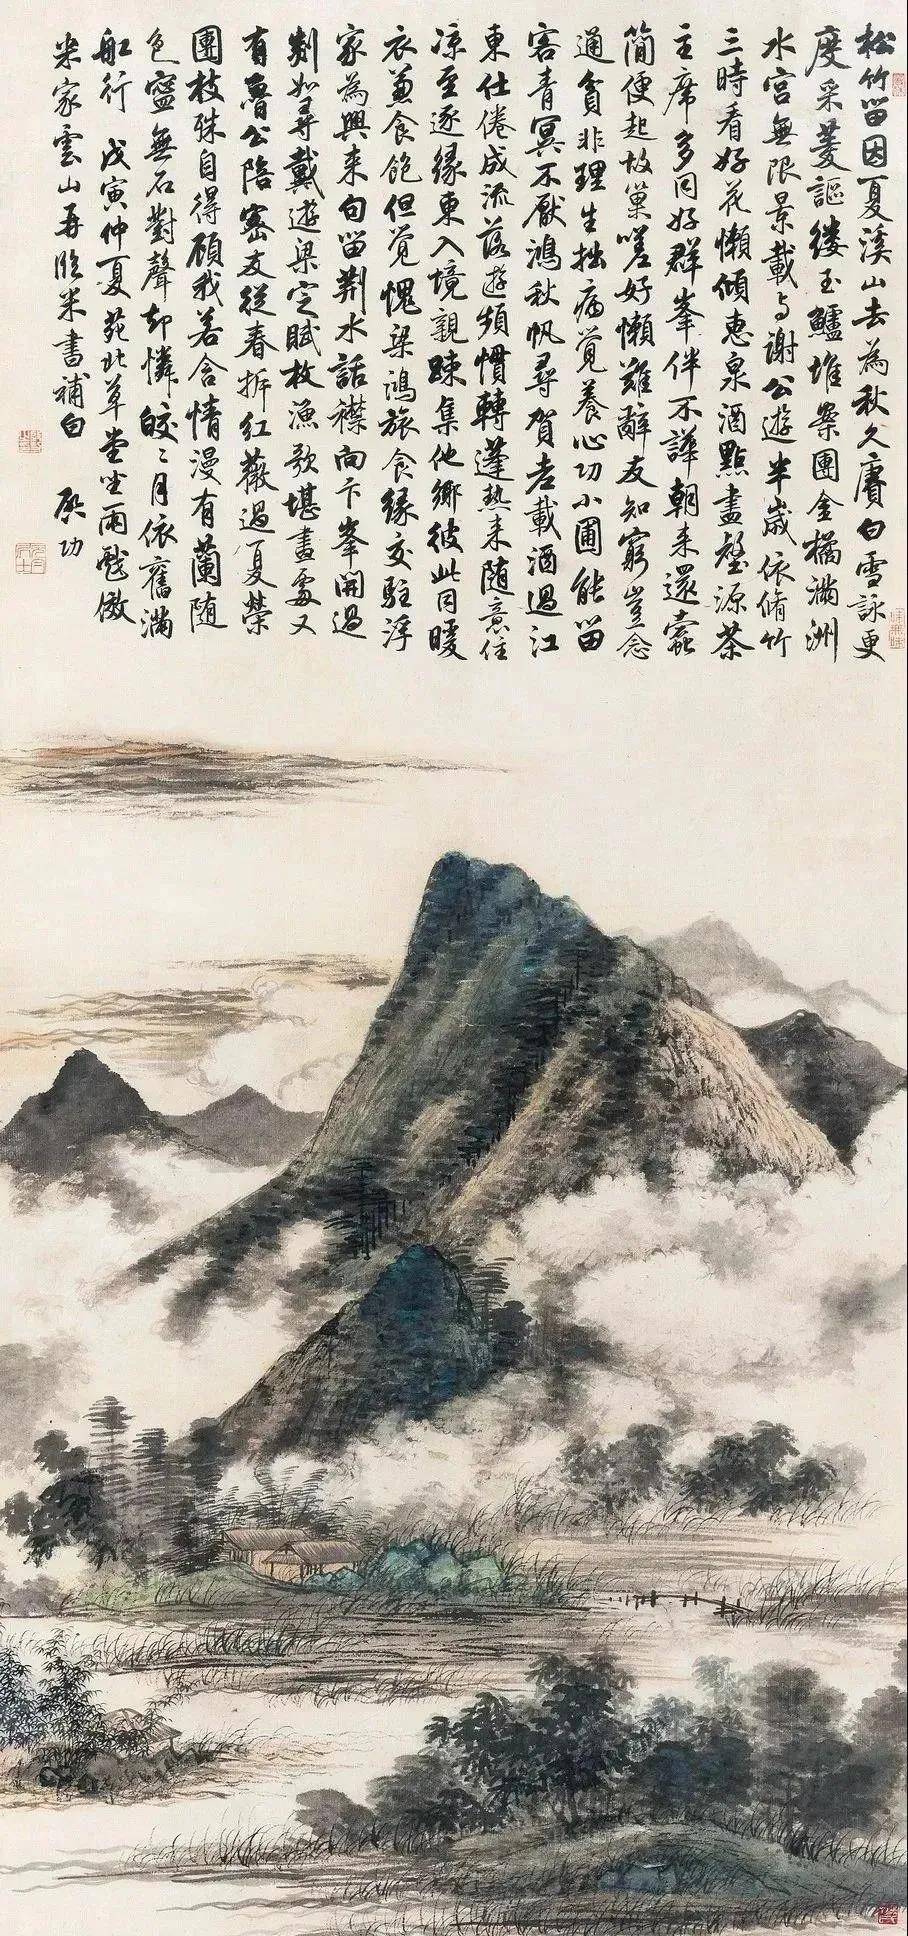 松竹留因夏溪山去為秋久賡白雪詠更
度采菱謳縷玉鱸堆案團金橘滿洲
水宮無限景載与謝公遊半歲依脩竹
三時看好花懶傾惠泉酒點盡壑源茶
主席多同好群峯伴不譁朝来還蠹
簡便起故巢嗟好懶難辭友知窮豈念
通貧非理生拙病覺養心功小圃能留
客青冥不厭鴻秋帆尋賀老載酒過江
東仕倦成流落遊頻慣轉蓬熱来隨意住
涼至逐緣東入境親踈集他鄉彼此同暖
衣兼食飽但覺愧梁鴻旅食緣交駐浮
家為興来句留荆水話襟向卞峯開過
剡如尋戴遊梁定賦枚漁歌堪畫處又
有魯公陪密友從春拆紅薇過夏榮
團枝殊自得顧我若含情漫有蘭隨
色寧無石對聲却憐皎〻月依舊滿
舡行 戊寅仲夏苑北草堂坐雨戲倣
米家雲山再臨米書補白 啟功